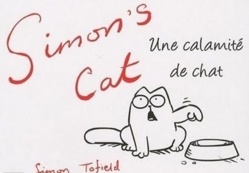 Simon's
Cat
Une calamité
de chat
Simon Tofield